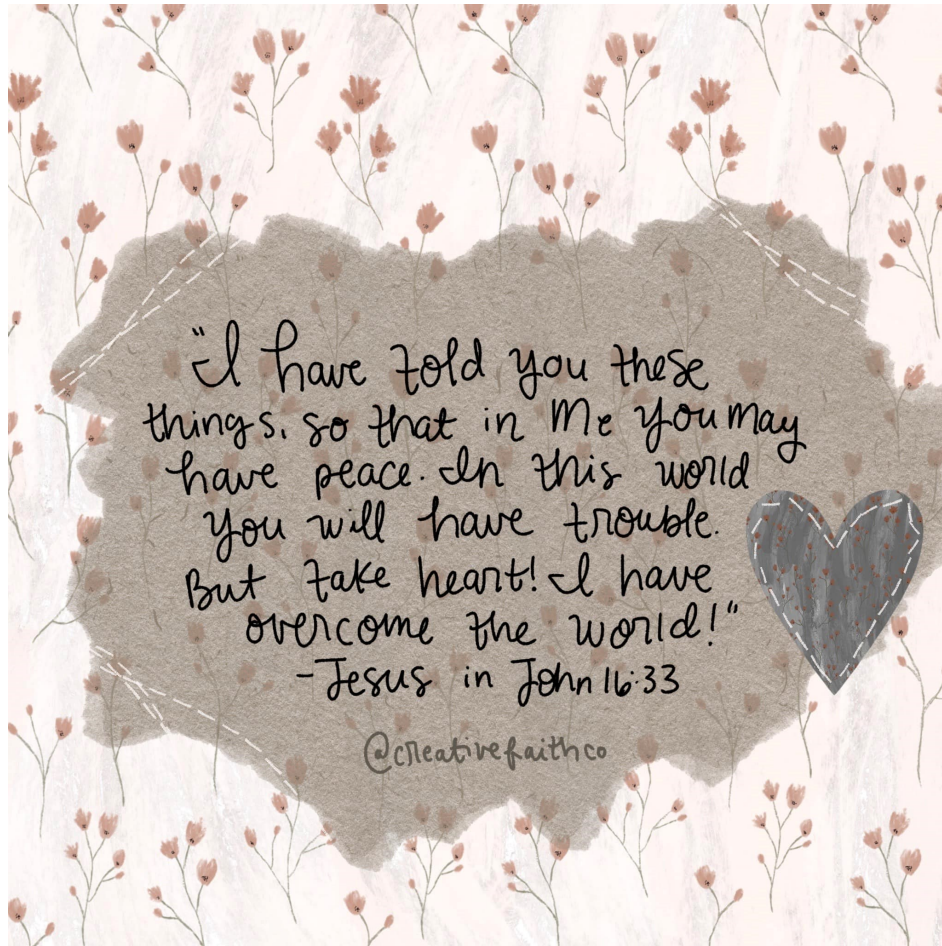 "I have told you these
things, so that in Me you may
have peace. In this world
you will have trouble.
But take heart! I have
overcome the world!"
-Jesus in John 16:33
@creativefaithco